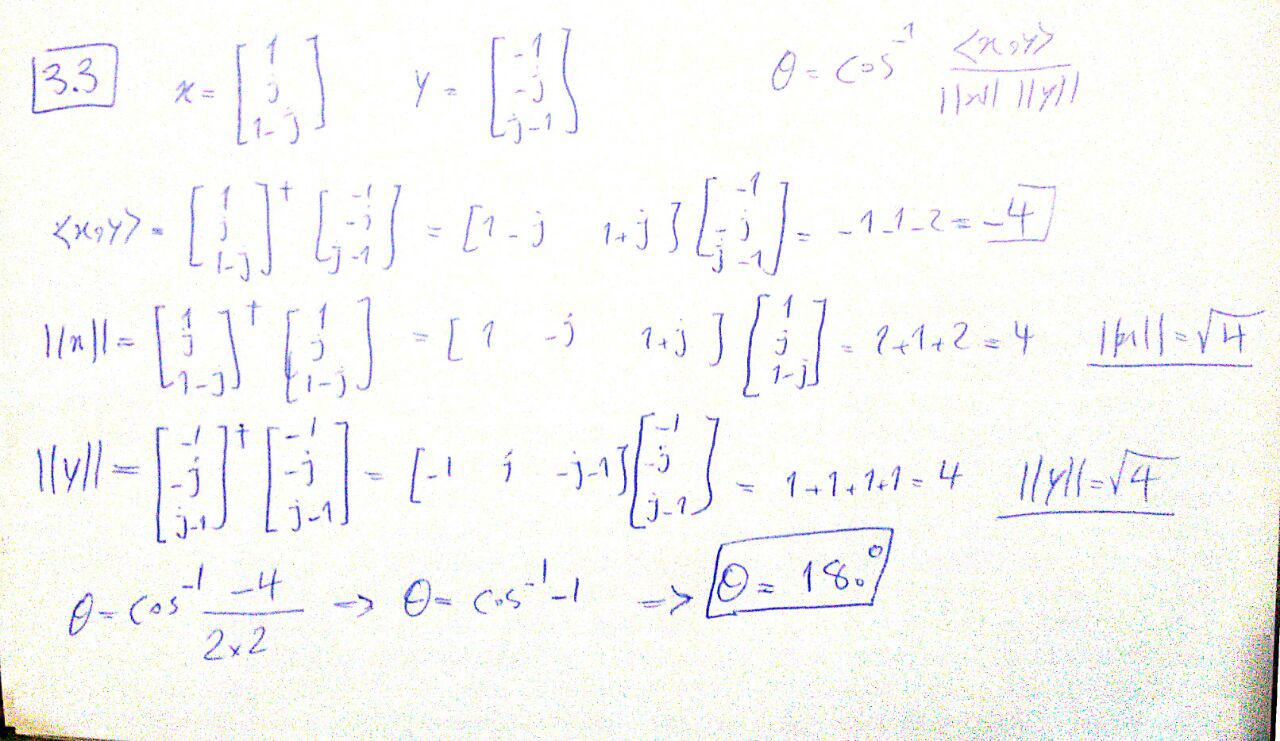 3.3 x = [1 j 1-j] y = [-1 -j j-1] θ = cos⁻¹ <x,y> / ||x|| ||y||
<x,y> = [1 j 1-j]† [-1 -j j-1] = [1 -j 1+j] [-1 -j j-1] = -1-1-2 = -4
||x|| = [1 j 1-j]† [1 j 1-j] = [1 -j 1+j] [1 j 1-j] = 1+1+2 = 4 ||x|| = √4
||y|| = [-1 -j j-1]† [-1 -j j-1] = [-1 j -j-1] [-1 -j j-1] = 1+1+1+1 = 4 ||y|| = √4
θ = cos⁻¹ -4 / 2×2 → θ = cos⁻¹ -1 → θ = 180°